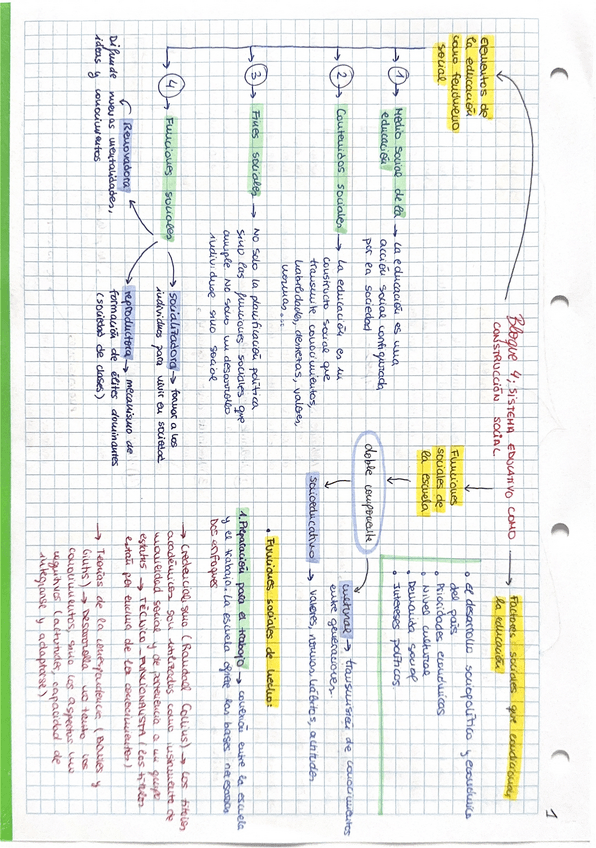 1
Bloque 4: SISTEMA EDUCATIVO COMO
CONSTRUCCIÓN SOCIAL
Elementos de
la educación
como fenómeno
social
① Medio social de la → La educación es una
educación
acción social configurada
por la sociedad
② Contenidos sociales → La educación es un
constructo social que
transmite conocimientos,
habilidades, destrezas, valores,
normas...
③ Fines sociales → No solo la planificación política
sino las funciones sociales que
cumple. No solo un desarrollo
individual sino social
④ Funciones sociales
→ socializadora → formar a los
individuos para vivir en sociedad
→ reproductora → mecanismo de
formación de élites dominantes
(sociedad de clases)
Renovadora
Difunde nuevas mentalidades,
ideas y conocimientos
Factores sociales que condicionan
la educación
• el desarrollo sociopolítico y económico
del país
• Prioridades económicas
• Nivel cultural
• Demanda social
• Intereses políticos
Funciones
sociales de
la escuela
doble componente
cultural → transmisión de conocimientos
entre generaciones
socioeducativo → valores, normas, hábitos, actitudes
• Funciones sociales de hecho:
1. Preparación para el trabajo → conexión entre la escuela
y el trabajo. La escuela ofrece las bases necesarias
Dos enfoques
→ Credencialismo (Randall Collins) → Los títulos
académicos son utilizados como instrumento de
movilidad social y de pertenencia a un grupo
estatus → TÉCNICO-FUNCIONALISTA (los títulos
están por encima de los conocimientos)
→ Teorías de la correspondencia (Bowles y
Gintis) → Desarrolla no tanto los
conocimientos sino los aspectos no
cognitivos (actitudes, capacidad de
integrarse y adaptarse)